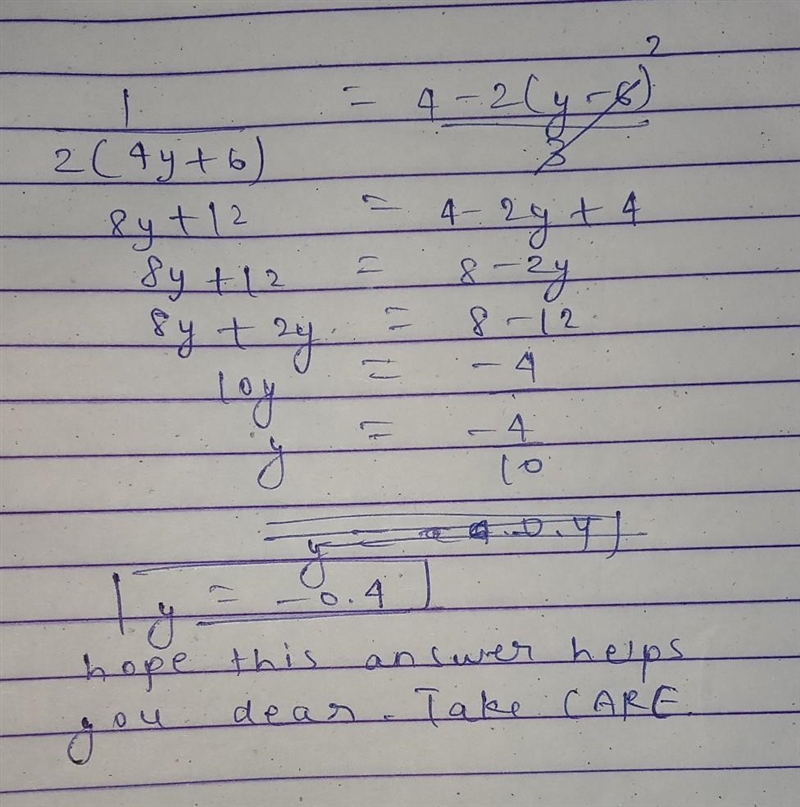 2
1 = 4 - 2(y - 6)
2(4y + 6) 3
8y + 12 = 4 - 2y + 4
8y + 12 = 8 - 2y
8y + 2y = 8 - 12
10y = -4
y = -4
10
y = -0.4
hope this answer helps
you dear. Take CARE